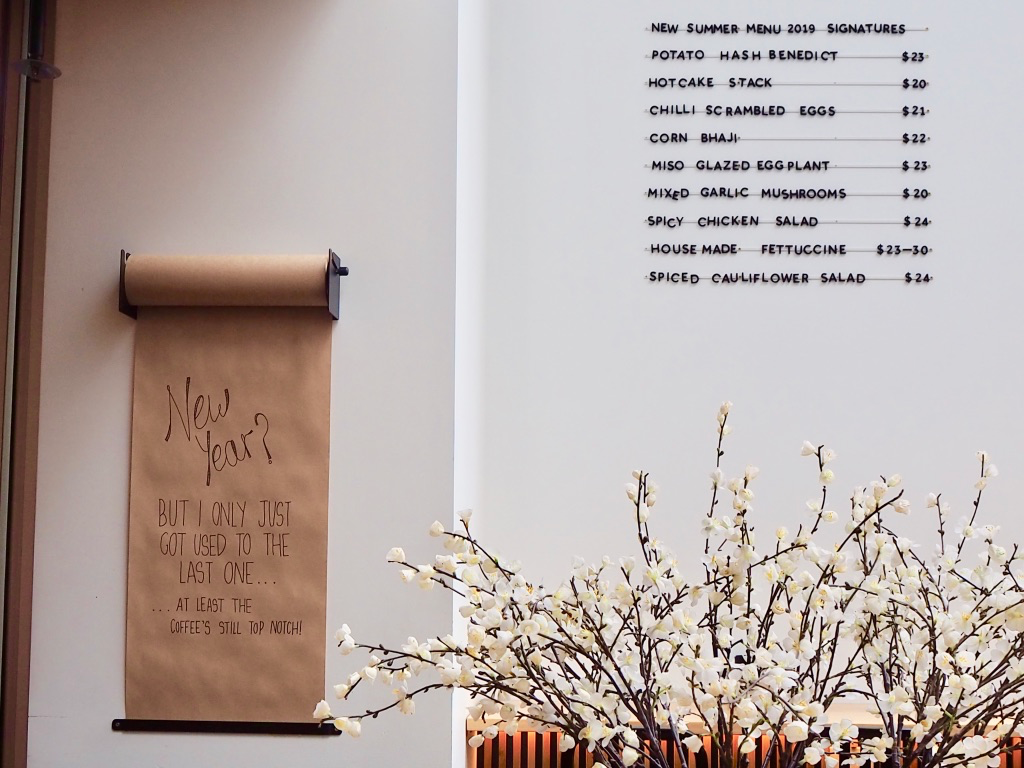 NEW SUMMER MENU 2019 SIGNATURES
POTATO HASH BENEDICT $23
HOTCAKE STACK $20
CHILLI SCRAMBLED EGGS $21
CORN BHAJI $22
MISO GLAZED EGGPLANT $23
MIXED GARLIC MUSHROOMS $20
SPICY CHICKEN SALAD $24
HOUSEMADE FETTUCCINE $23-30
SPICED CAULIFLOWER SALAD $24
New
Year?
BUT I ONLY JUST
GOT USED TO THE
LAST ONE...
...AT LEAST THE
COFFEE'S STILL TOP NOTCH!